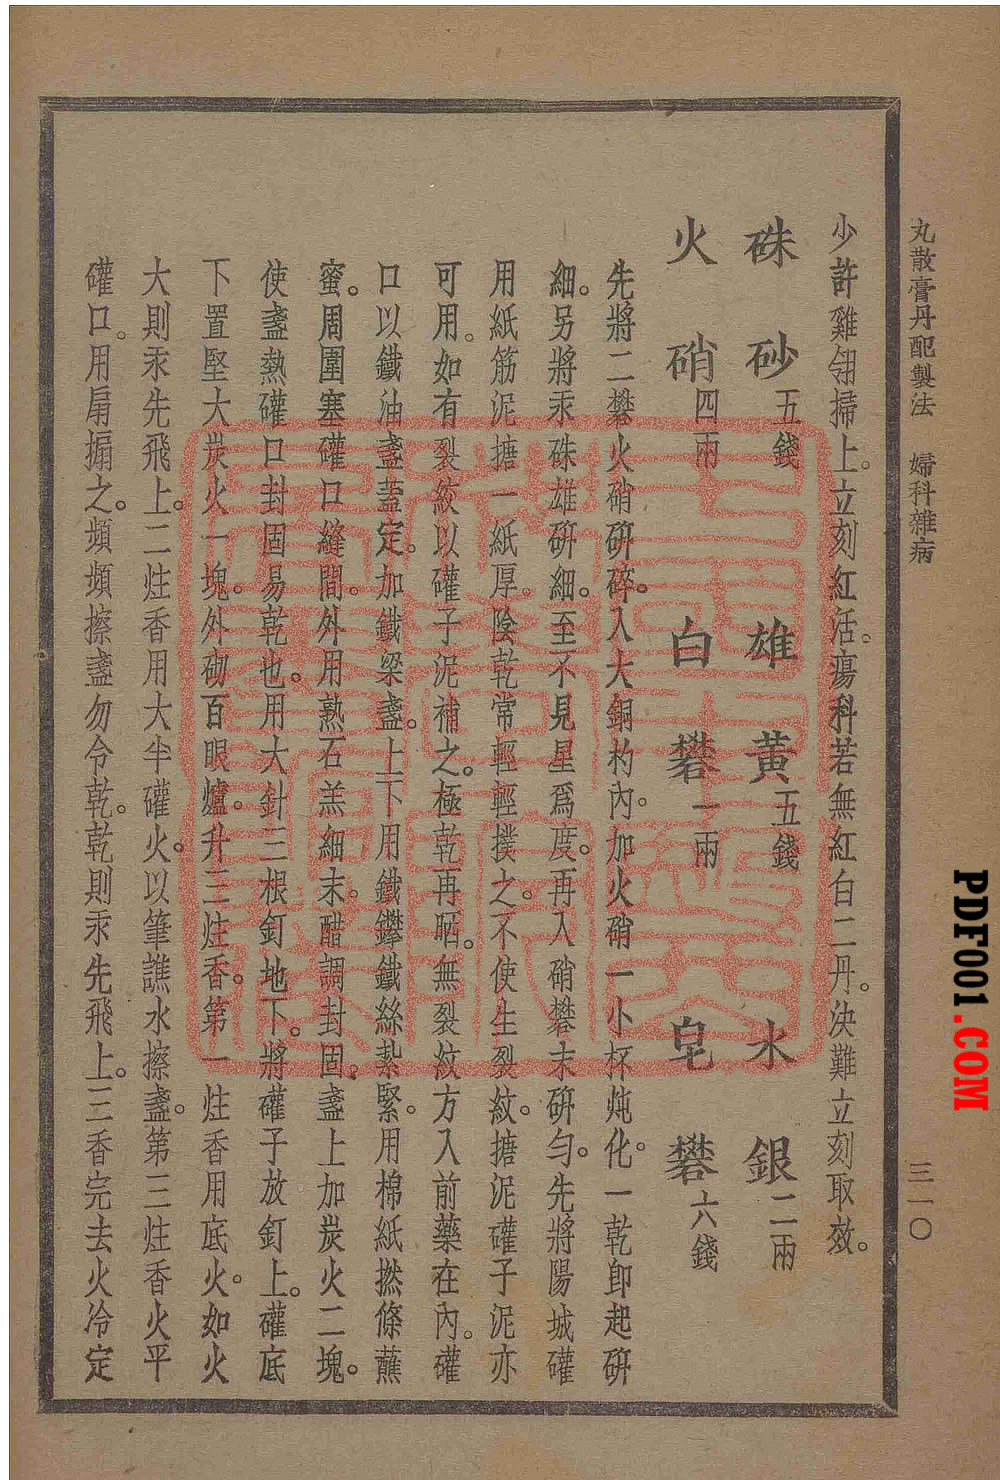 丸散膏丹配製法　婦科雜病
三一〇
少許雞翎掃上。立刻紅活。瘍科若無紅白二丹。決難立刻取效。
硃砂五錢　雄黃五錢　水銀二兩
火硝四兩　白礬一兩　皂礬六錢
先將二礬火硝研碎。入大銅杓內。加火硝一小杯炖化。一乾卽起研
細。另將汞硃雄研細。至不見星爲度。再入硝礬末研勻。先將陽城礶
用紙筋泥搪一紙厚。陰乾常輕輕撲之。不使生裂紋。搪泥礶子泥亦
可用。如有裂紋以礶子泥補之。極乾再晒。無裂紋方入前藥在內。礶
口以鐵油盞蓋定。加鐵梁盞。上下用鐵鑻鐵絲紮緊。用棉紙撚條蘸
蜜。周圍塞礶口縫間。外用熟石羔細末。醋調封固。盞上加炭火二塊。
使盞熱礶口封固易乾也。用大針三根釘地下。將礶子放釘上。礶底
下置堅大炭火一塊。外砌百眼爐。升三炷香。第一炷香用底火。如火
大則汞先飛上。二炷香用大半礶火。以筆蘸水擦盞。第三炷香火平
礶口。用扇搧之。頻頻擦盞勿令乾。乾則汞先飛上。三香完去火冷定
PDF001.COM